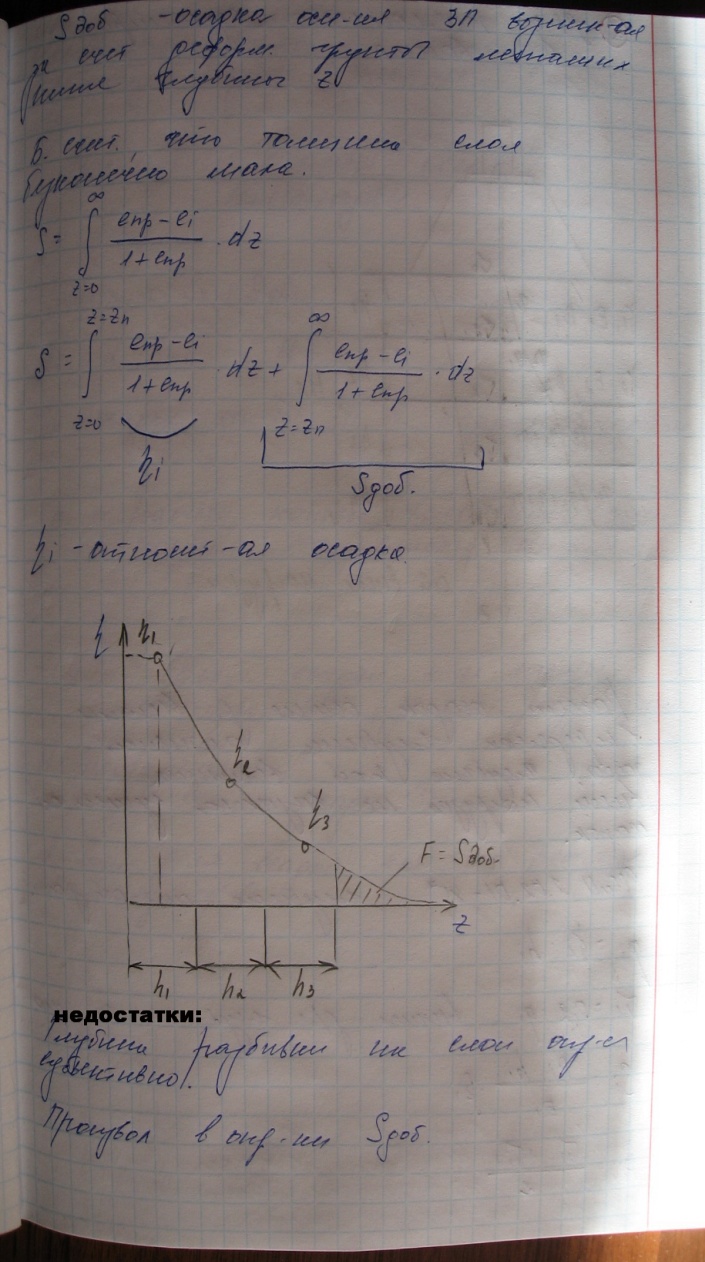 Sдоб - осадка осн-ия ЗП возник-ая
за счет деформ. грунтов лежащих
ниже глубины Z
Б. счит., что толщина слоя
бесконечно мала.
S = ∫ (z=0, ∞) (eпр - ei)/(1 + eпр) · dz
S = ∫ (z=0, z=zn) (eпр - ei)/(1 + eпр) · dz + ∫ (z=zn, ∞) (eпр - ei)/(1 + eпр) · dz
ηi
Sдоб.
ηi - относит-ая осадка.
η η1
η2
η3
F = Sдоб.
z
h1 h2 h3
недостатки:
Глубина разбивки на слои опр-ся
субъективно.
Произвол в опр-ии Sдоб.